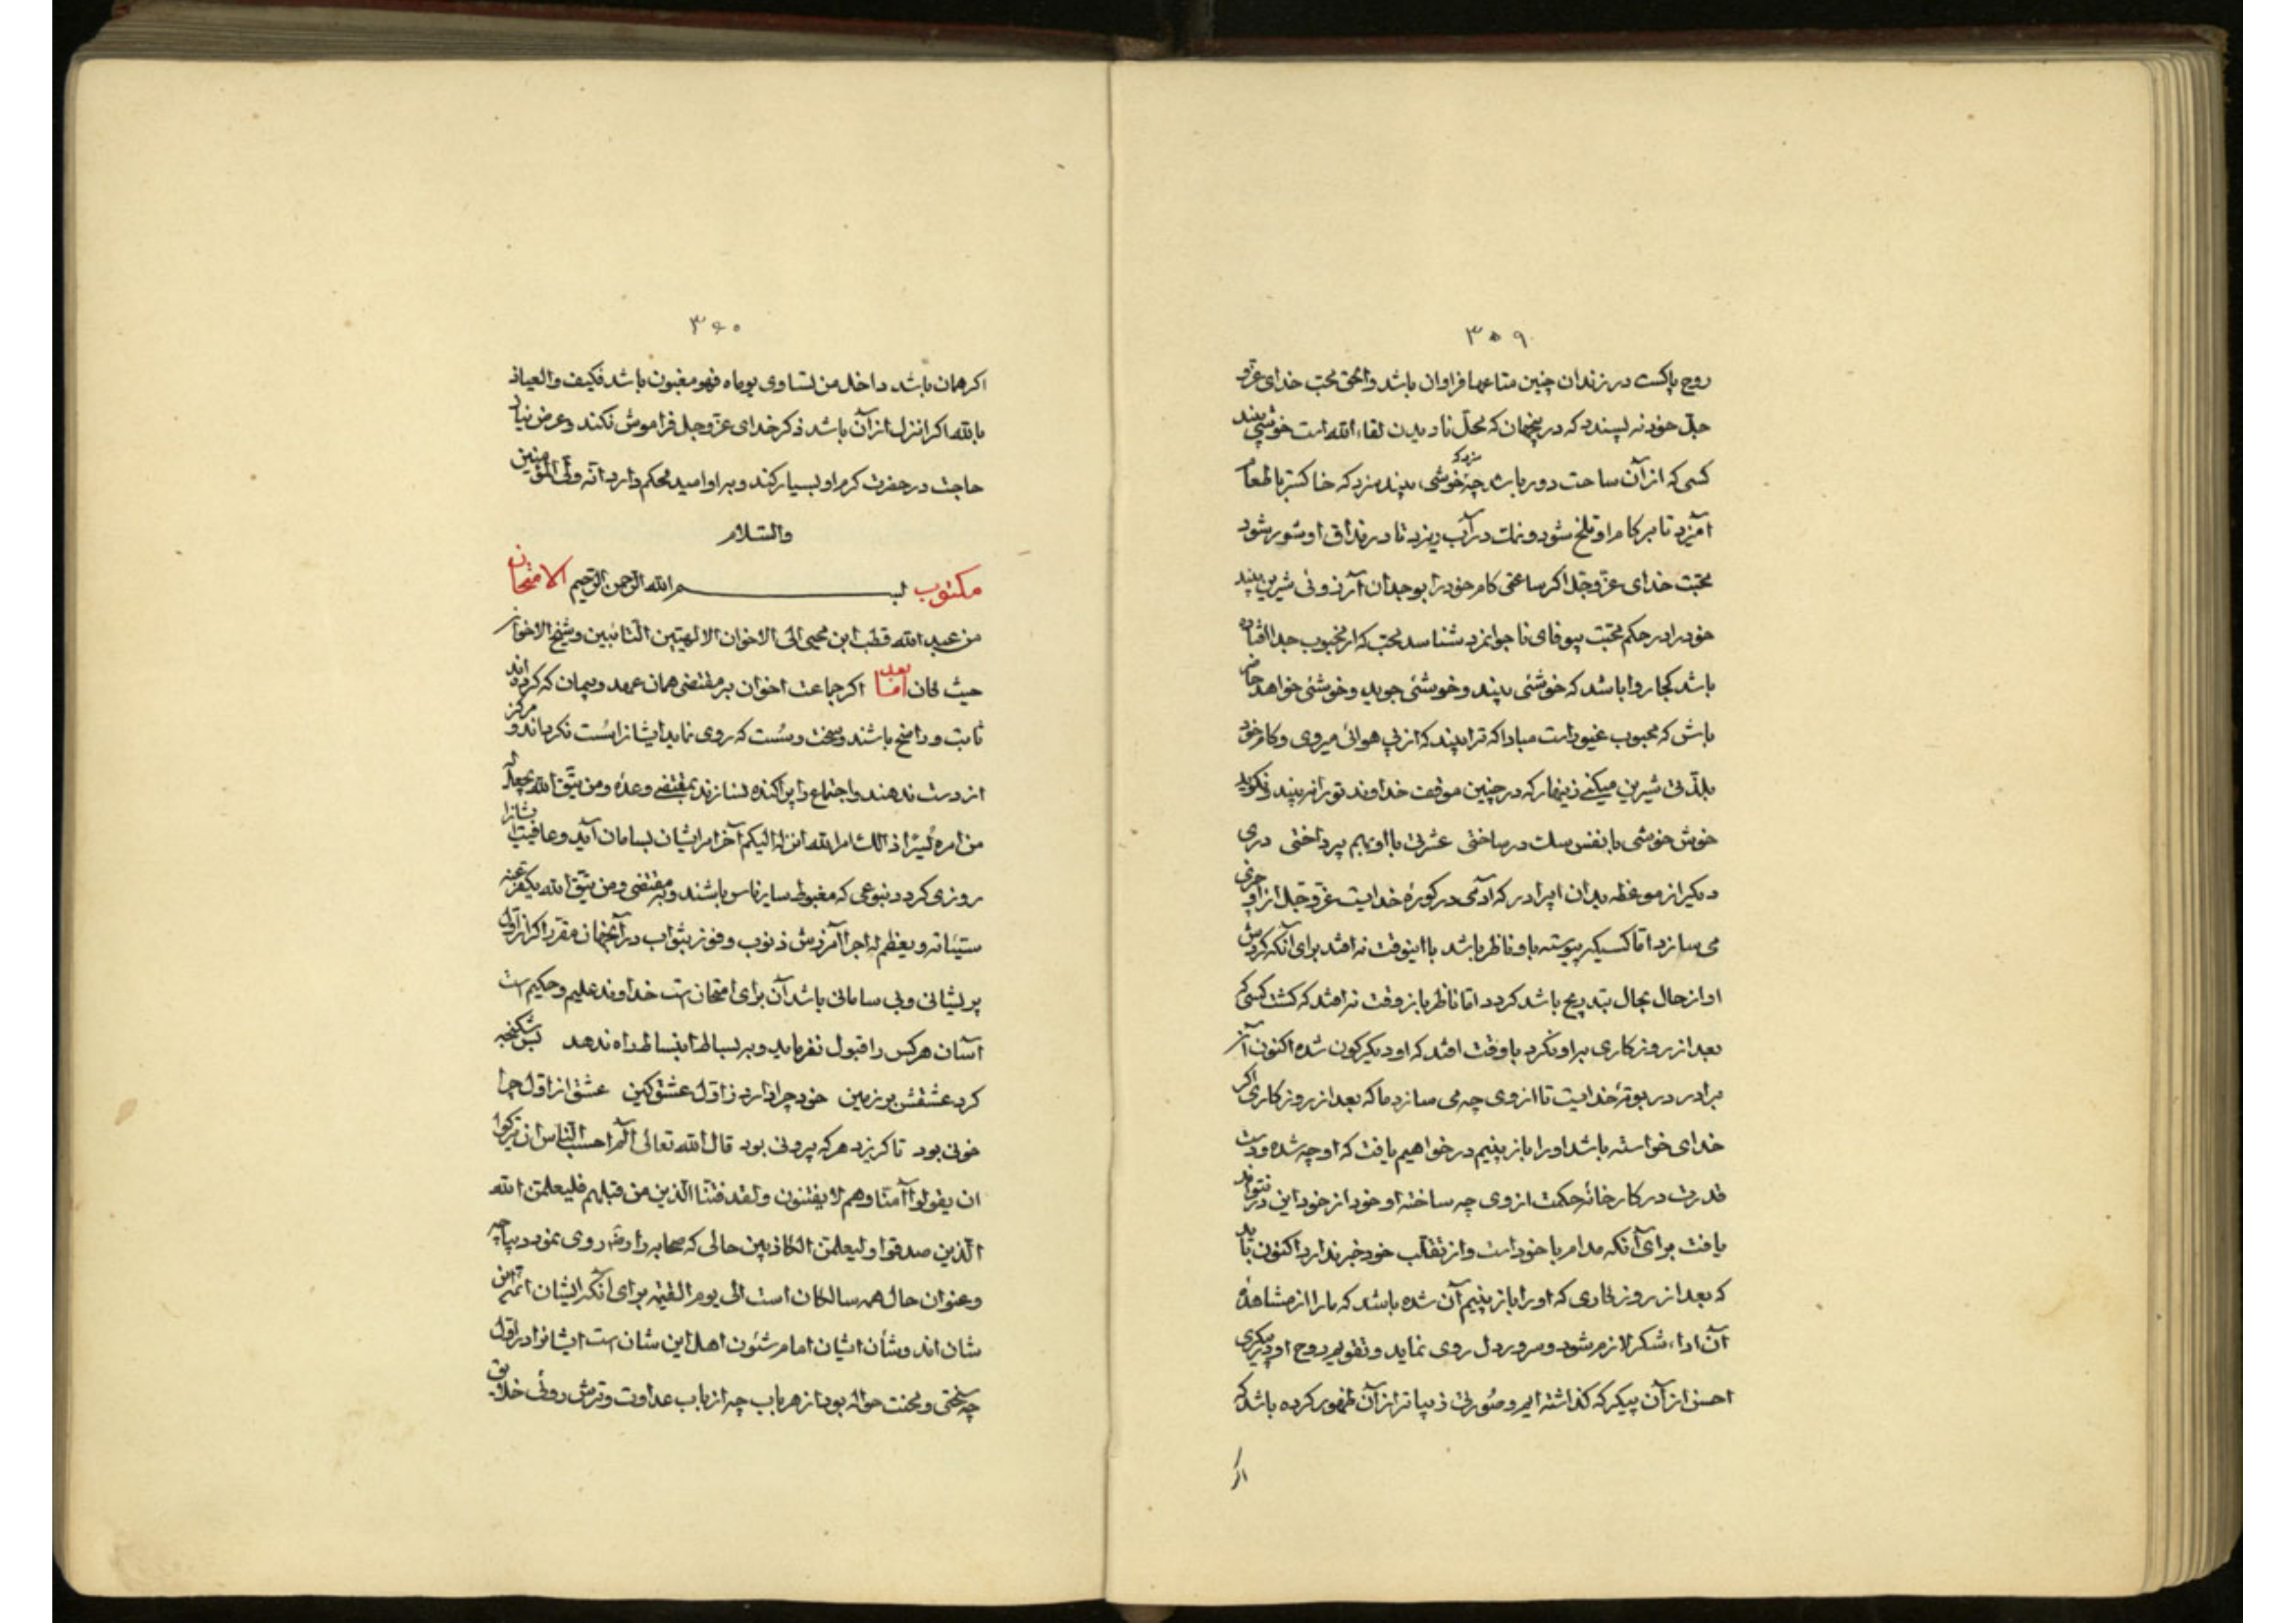 ۳۵۹
روح پاکست در زندان چنین متاعها فراوان باشد والحق محب خدای عزّ و
جلّ خود نه پسندد که در جهان که محلّ نادیدن لقاء الله است خوشی بیند
کسی که از آن ساحت دور باشد چه خوشی بیند سزد که خاکستر با طعام
آمیزد تا بر کام او تلخ شود و نمک در آب ریزد تا در مذاق او شور شود
محبّت خدای عزّ و جلّ اگر ساعتی کام خود را بوجدان آرزوئی شیرین بیند
خود را در حکم محبّت بیوفای ناجوانمرد شناسد محب که از محبوب جدا افتاده
باشد کجا روا باشد که خوشئی بیند و خوشئی جوید و خوشئی خواهد حاضر
باش که محبوب غیور است مبادا که ترا بیند که از پی هوائی میروی و کام خود
بلذّتی شیرین میکنی زینهار که در چنین موقف خداوند تو را نه بیند و نگوید
خوش خوشی با نفس سگ درساختی عشرتی با او بهم پرداختی دری
دیگر از موعظه بدان ای برادر که آدمی در کوره خدایست عزّ و جلّ از او چیزی
می سازد امّا کسیکه پیوسته باو ناظر باشد با اینوقت نه افتد برای آنکه گردش
او از حال بحال بتدریج باشد گردد امّا ناظر باز وقت نه افتد که گشت کسی که
بعد از روزگاری بر او نگرد باوقت افتد که او دیگرگون شده اکنون آن
برادر در بوتهٔ خدایست تا از وی چه می سازد ما که بعد از روزگاری اگر
خدای خواسته باشد او را باز بینیم درخواهیم یافت که او چه شده و دست
قدرت در کارخانه حکمت از وی چه ساخته او خود از خود این در نتواند
یافت برای آنکه مدام با خود است و از تقلّب خود خبر ندارد اکنون باید
که بعد از روزگاری که او را باز بینیم آن شده باشد که ما را از مشاهدهٔ
آن اداء شکر لازم شود و سرور دل روی نماید و تقویم روح او پیکری
احسن از آن پیکر که گذاشته ایم و صُورتی زیباتر از آن ظهور کرده باشد که
اگر
۳۶۰
اگر همان باشد داخل من تساوی یوماه فهو مغبون باشد فکیف والعیاذ
بالله اگر انزل از آن باشد ذکر خدای عزّ و جل فراموش نکند و عرض نیاز
حاجت در حضرت کرم او بسیار کند و بر او امید محکم دارد انّه ولیّ المؤمنین
والسّلام
مکتوب بسم الله الرّحمن الرّحیم الامتحان
من عبد الله قطب ابن محیی الی الاخوان الالهیّین التّائبین و شیخ الاخوان
حیث کان امّا بعد اگر جماعت اخوان بر مقتضی همان عهد و پیمان که کرده اند
ثابت و راسخ باشند و سخت و سُست که روی نماید ایشانرا سُست نگرداند و مرکز
از دست ندهند و اجتماع را پراکنده نسازند بمقتضی وعدهٔ و من یتّق الله یجعل له
من امره یُسرًا ذالک امر الله انزله الیکم آخر امر ایشان بسامان آید و عافیت ایشانرا
روزی گردد بنوعی که مغبوط سایر ناس باشند و بر مقتضی و من یتّق الله یکفّر عنه
سیّئاته و یعظم له اجرا آمرزش ذنوب و فوز بثواب در آنجهان مقرّر اگر از اوّل
پریشانی و بی سامانی باشد آن برای امتحان است خداوند علیم و حکیم است
آسان هر کس را قبول نفرماید و بر بساط انبساط راه ندهد بس شکنجه
کرد عشقش بر زمین خود چرا دارد ز اوّل عشق کین عشق از اوّل چرا
خونی بود تا گریزد هر که بیرونی بود قال الله تعالی الم احسب النّاس ان یترکوا
ان یقولوا آمنّا و هم لا یفتنون و لقد فتنّا الّذین من قبلهم فلیعلمنّ الله
الّذین صدقوا و لیعلمنّ الکاذبین حالی که صحابه را روی نمود دیباچه
و عنوان حال همه سالکان است الی یوم القیمه برای آنکه ایشان ائمّه این
شان اند و شأن ایشان امام شئون اهل این شان است ایشانرا در اوّل
چه سختی و محنت حواله بود از هر باب چه از باب عداوت و ترش روئی خلایق